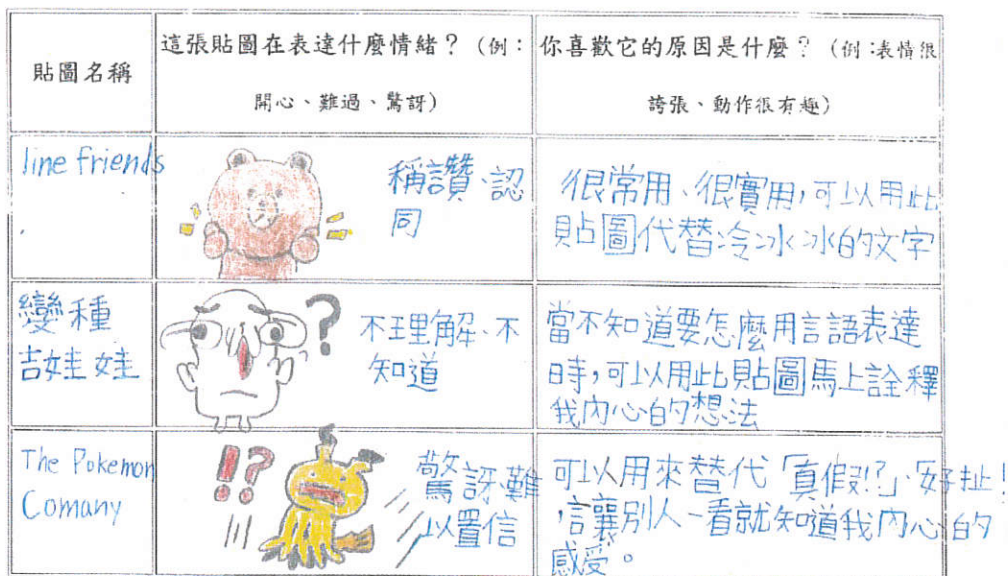 貼圖名稱
這張貼圖在表達什麼情緒？（例：
開心、難過、驚訝）
你喜歡它的原因是什麼？（例：表情很
誇張、動作很有趣）
line friends
稱讚、認
同
很常用、很實用，可以用此
貼圖代替冷冰冰的文字
變種
吉娃娃
?
不理解、不
知道
當不知道要怎麼用言語表達
時，可以用此貼圖馬上詮釋
我內心的想法
The Pokemon
Comany
!?
驚訝難
以置信
可以用來替代「真假!?」、「好扯!
，讓別人一看就知道我內心的
感受。